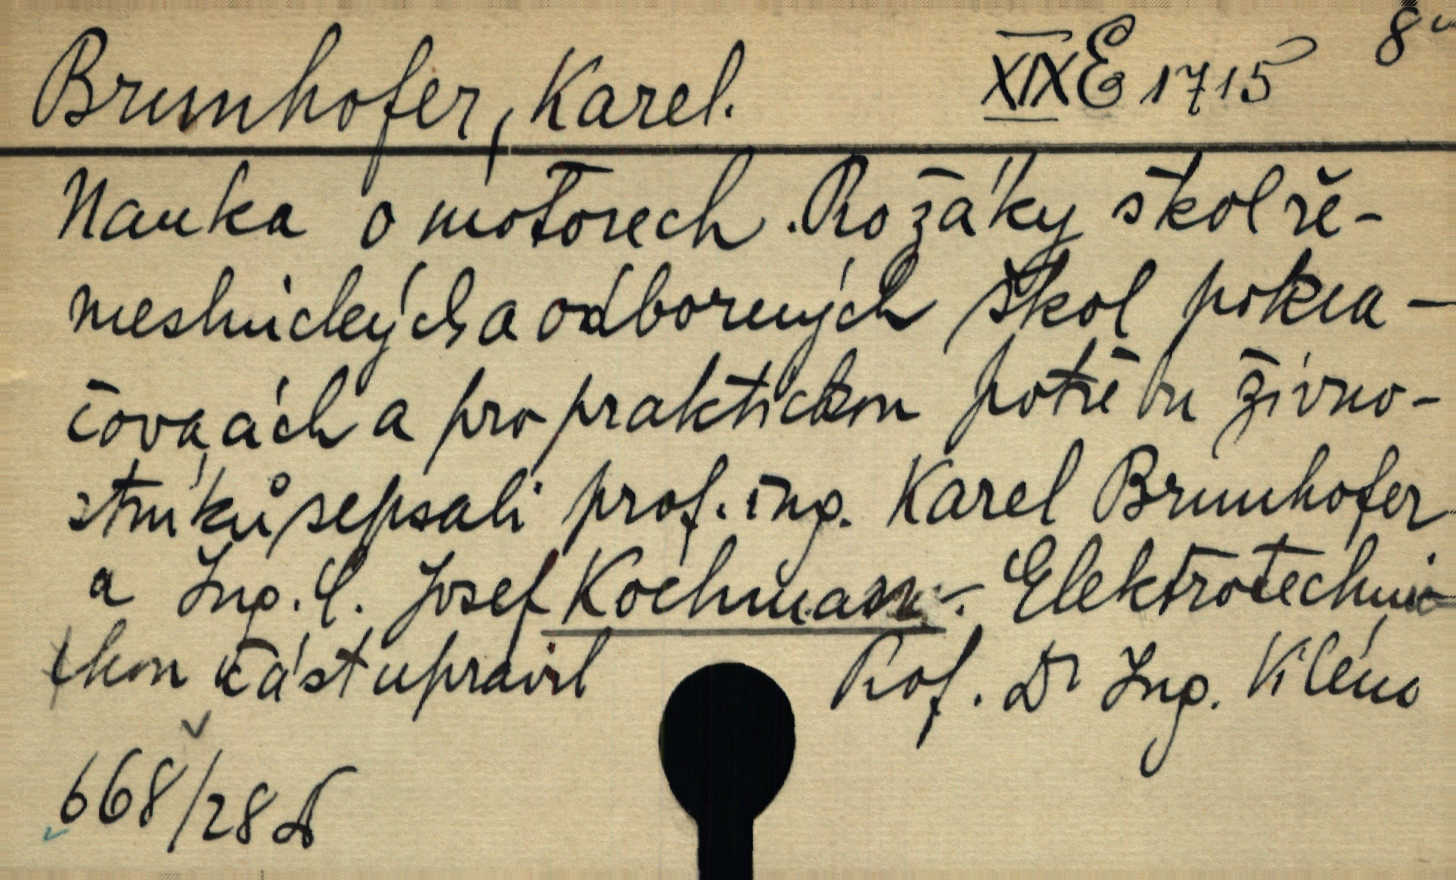 Brunhofer, Karel. XIX E 1715 8°
Nauka o motorech. Pro žáky škol ře-
meslnických a odborných škol pokra-
čovacích a pro praktickou potřebu živno-
stníků sepsali prof. ing. Karel Brunhofer
a Ing. C. Josef Kochmann. Elektrotechni-
ckou část upravil Prof. Dr Ing.
668/28